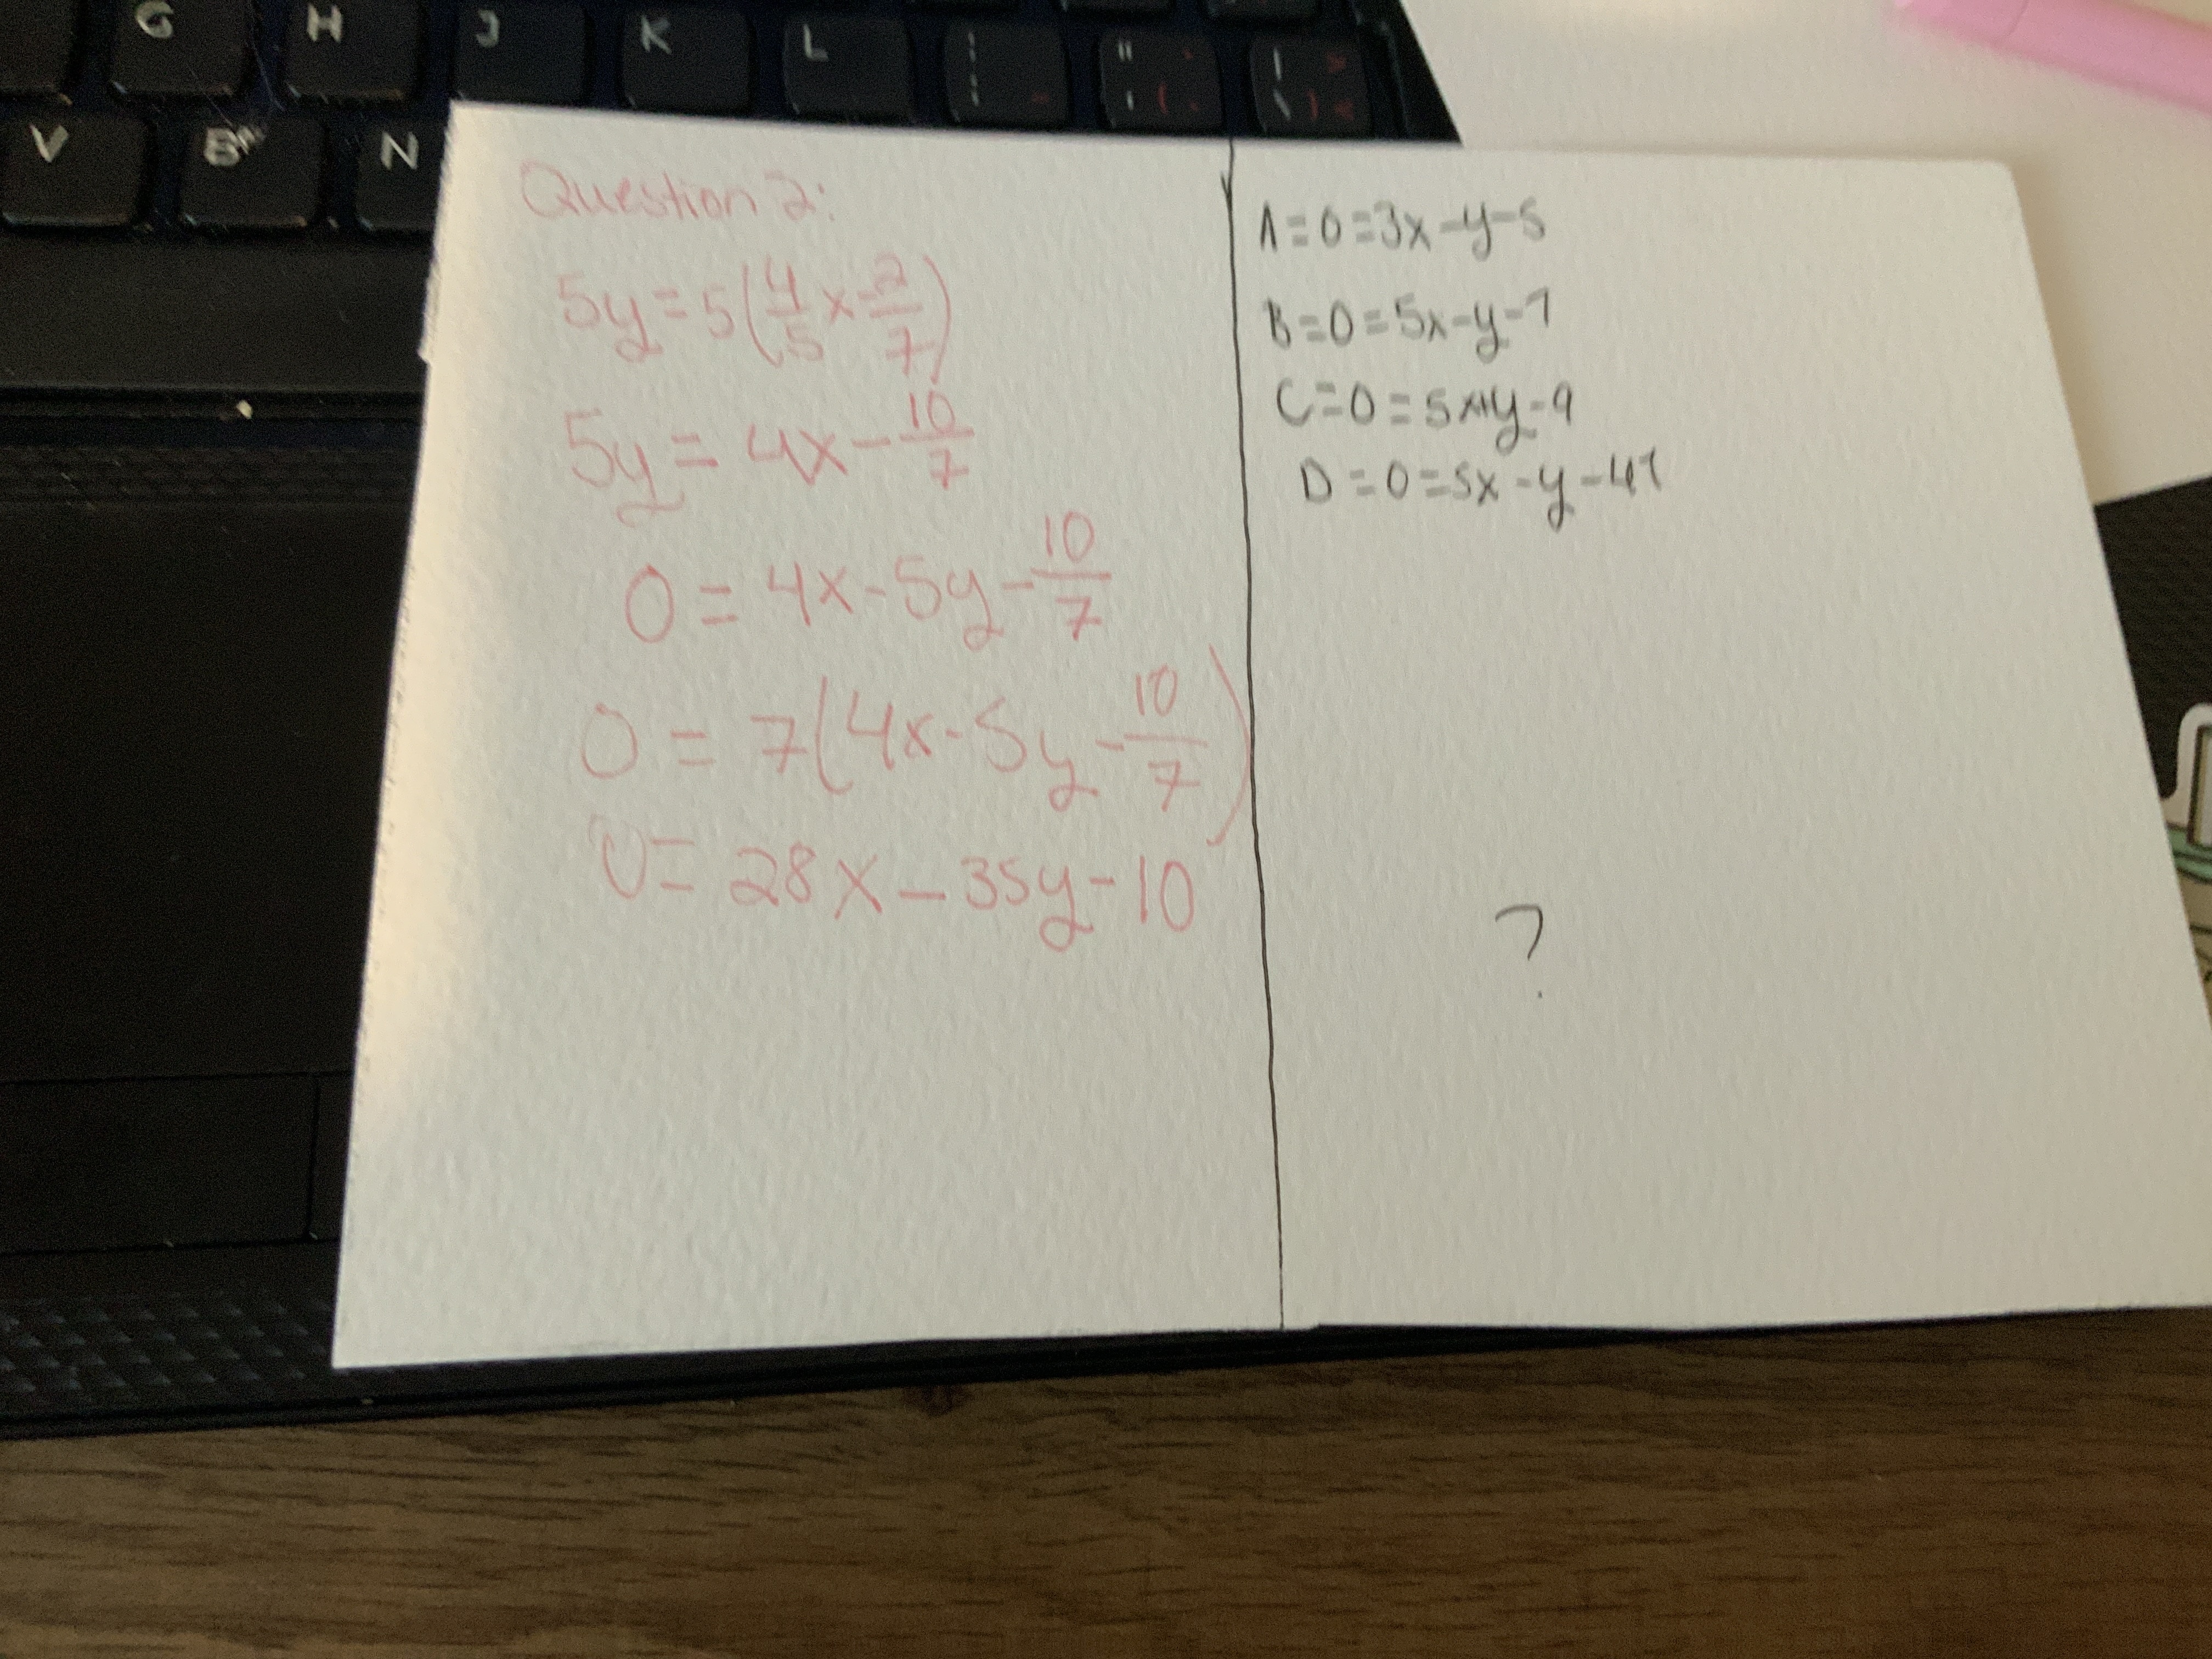 G H J K L
V B N
Question 2:
5y = 5(4/5 x - 2/7)
5y = 4x - 10/7
0 = 4x - 5y - 10/7
0 = 7(4x - 5y - 10/7)
0 = 28x - 35y - 10
A = 0 = 3x - y - 5
B = 0 = 5x - y - 7
C = 0 = 5x + y - 9
D = 0 = 5x - y - 47
?